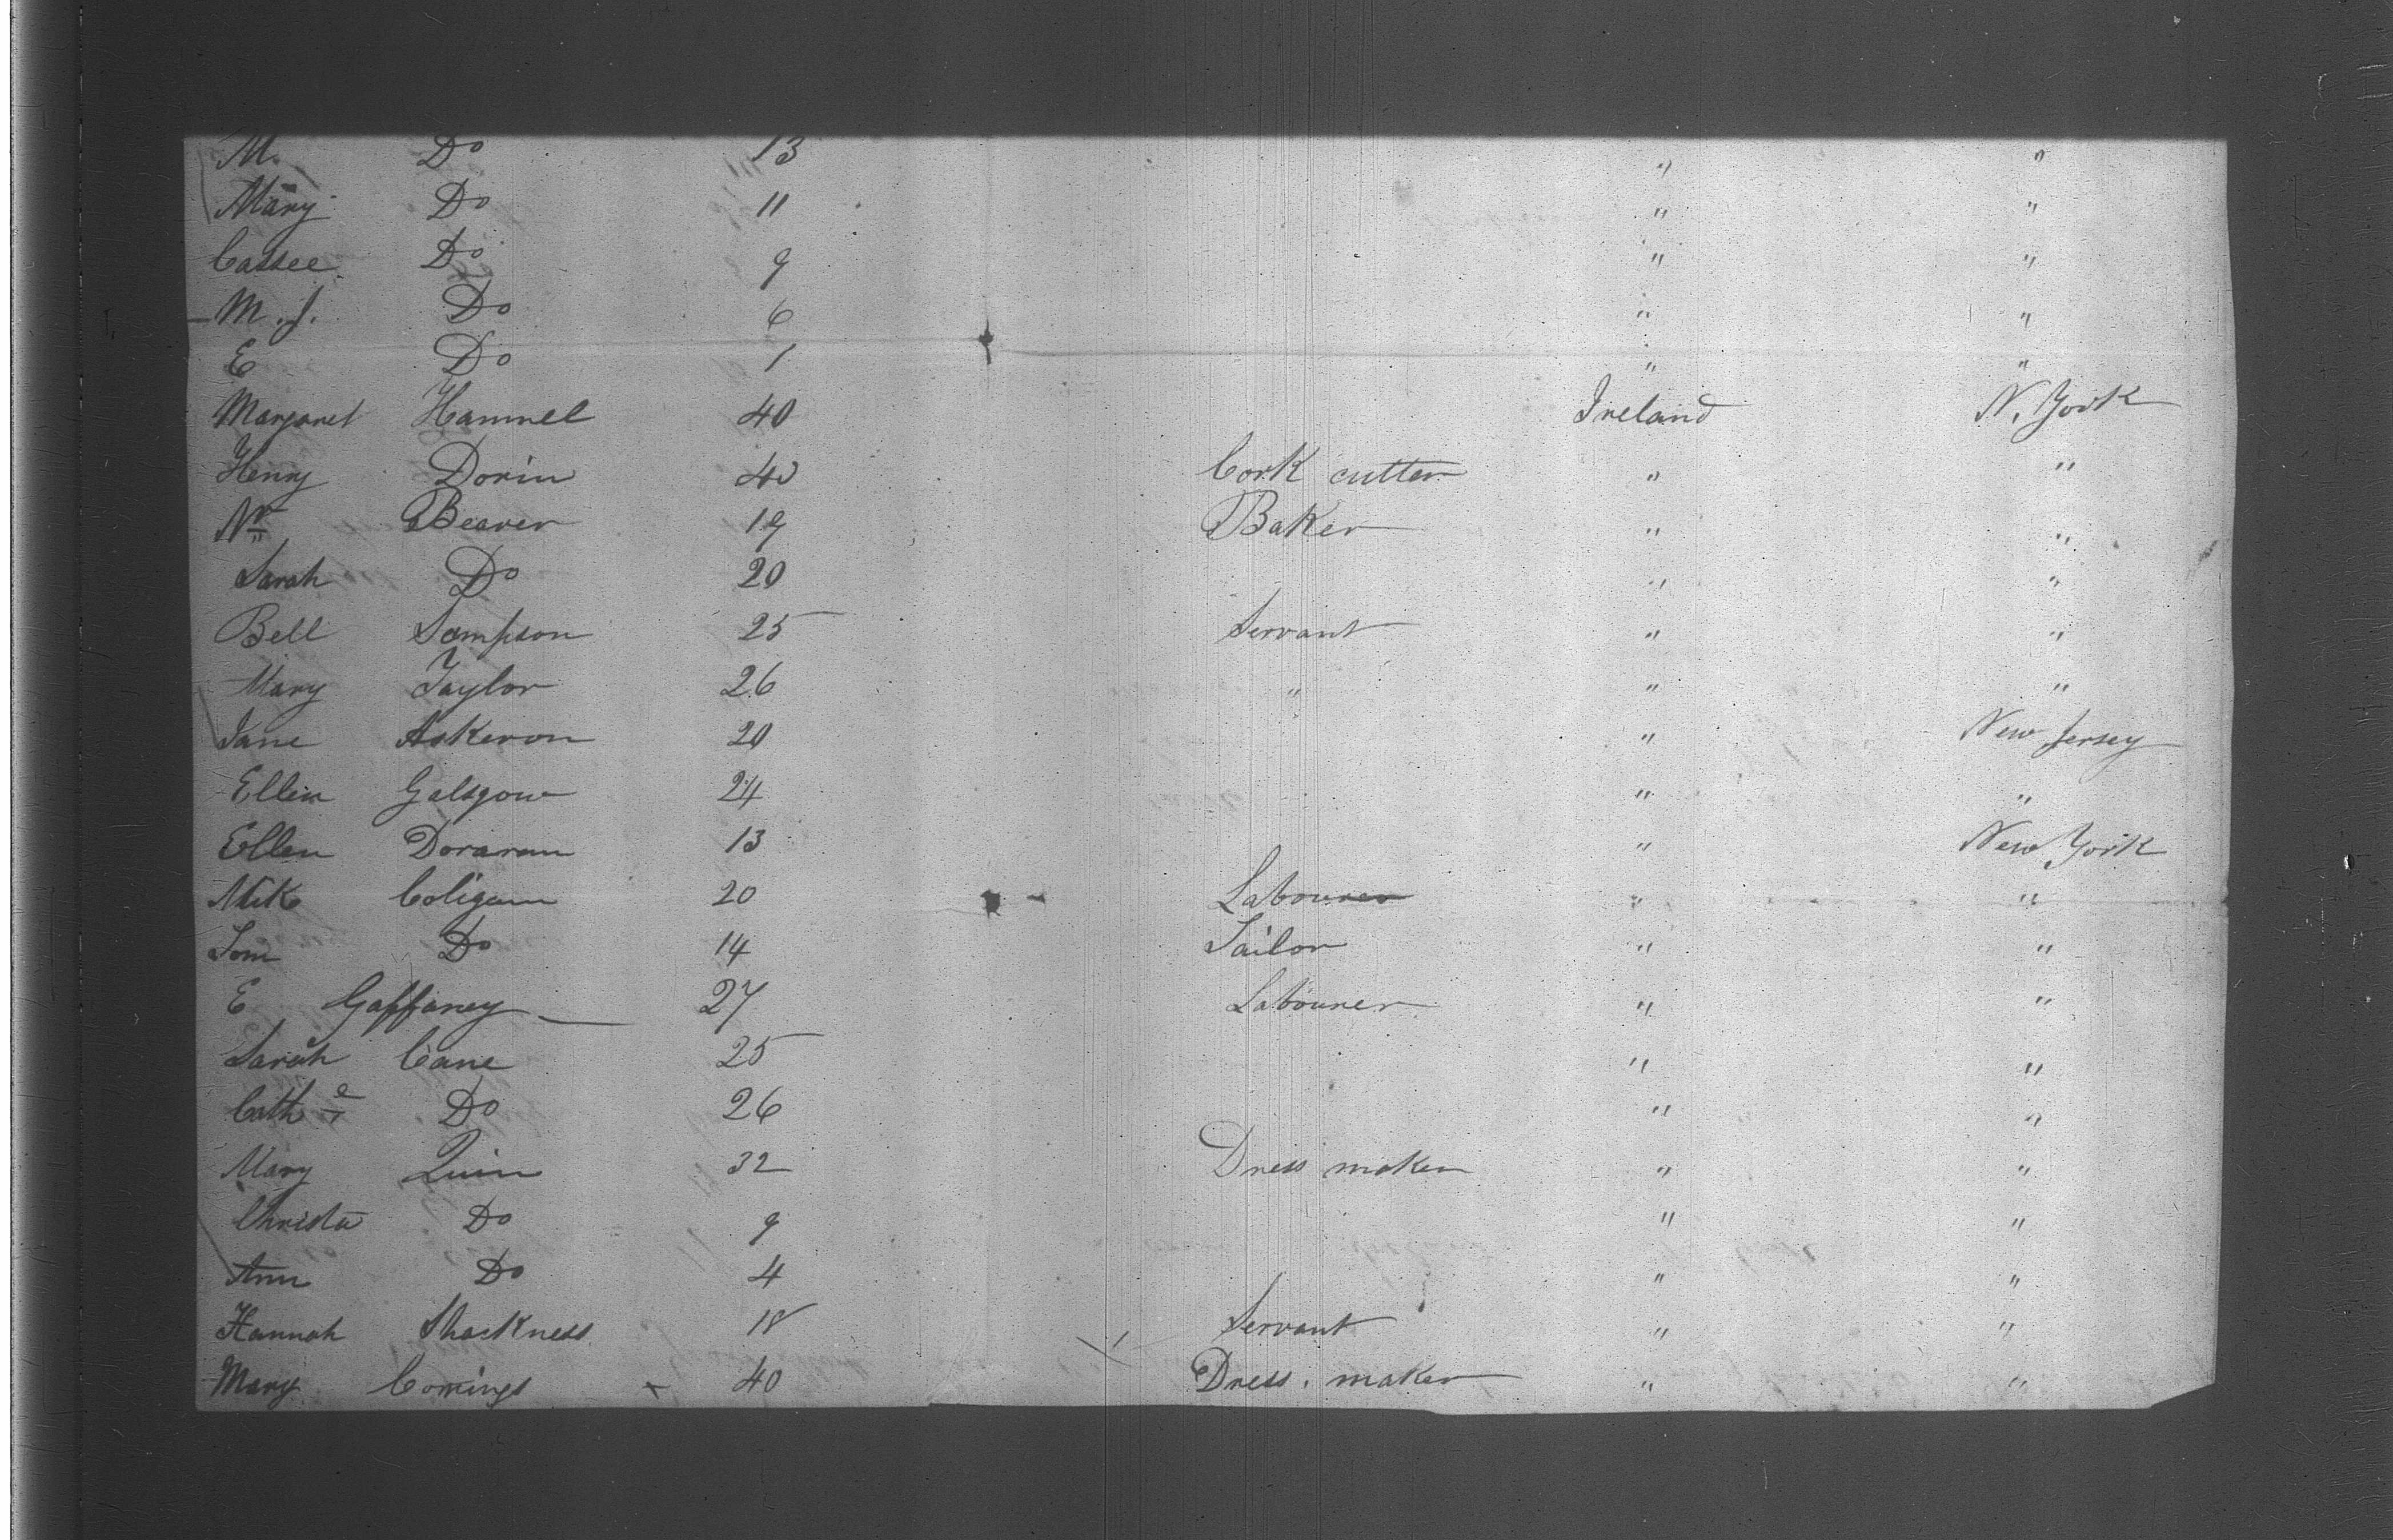 M. Do 13 " "
Mary Do 11 " "
Cassee Do 9 " "
M. J. Do 6 " "
E Do 1 " "
Margaret Hamnel 40 Ireland N. York
Henry Dorin 40 Cork cutter " "
Beaver 19 Baker " "
Sarah Do 20 " "
Bell Sampson 25 Servant " "
Mary Taylor 26 " " "
Jane Askeron 20 " New Jersey
Ellen Galsgow 24 " "
Ellen 13 " New York
Mik Coligan 20 Labourer " "
Tom Do 14 Tailor " "
E Gaffaney 27 Labourer " "
Sarah Cane 25 " "
Cath e Do 26 " "
Mary Quin 32 Dress maker " "
Christa Do 9 " "
Ann Do 4 " "
Hannah Shackness 18 Servant " "
Mary Comings x 40 Dress. maker " "